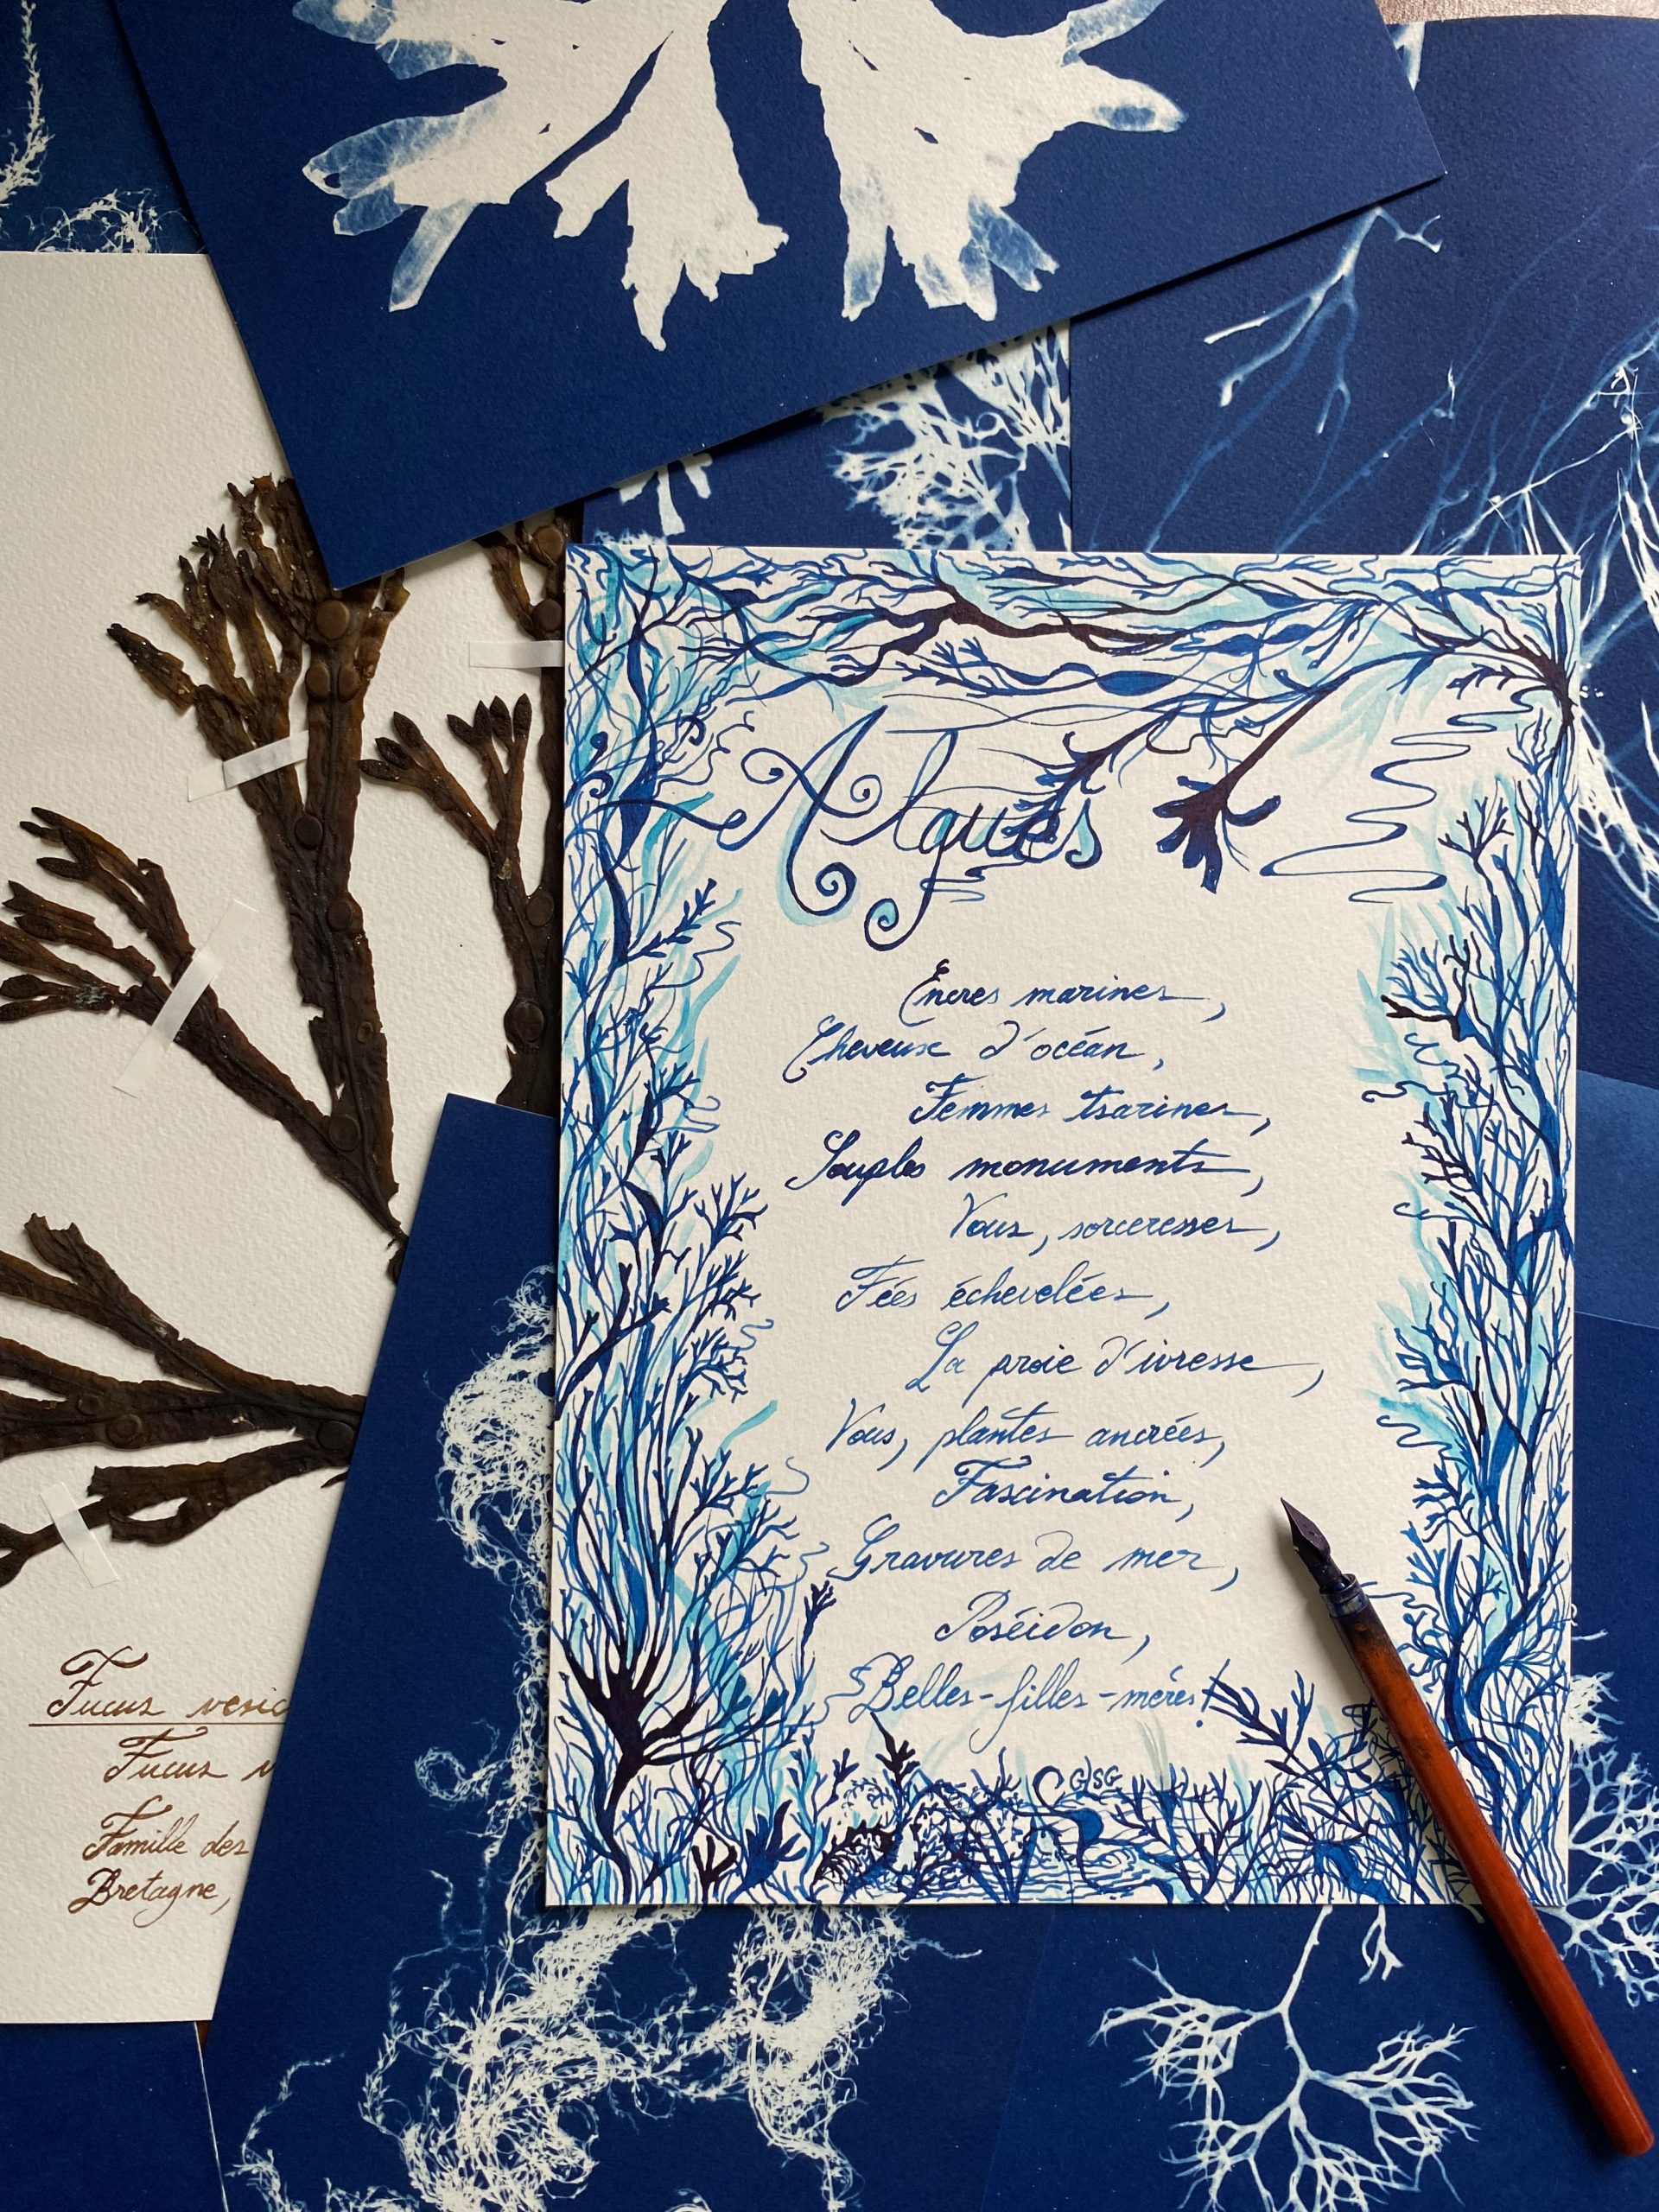 Algues
Encres marines,
Cheveux d'océan,
Femmes tsarines,
Souples monuments,
Vous, sorceresses,
Fées échevelées,
La proie d'ivresse,
Vous, plantes ancrées,
Fascination,
Gravures de mer,
Poséidon,
Belles-filles-mères!
GSG
Fucus vesic
Fucus v
Famille des
Bretagne,